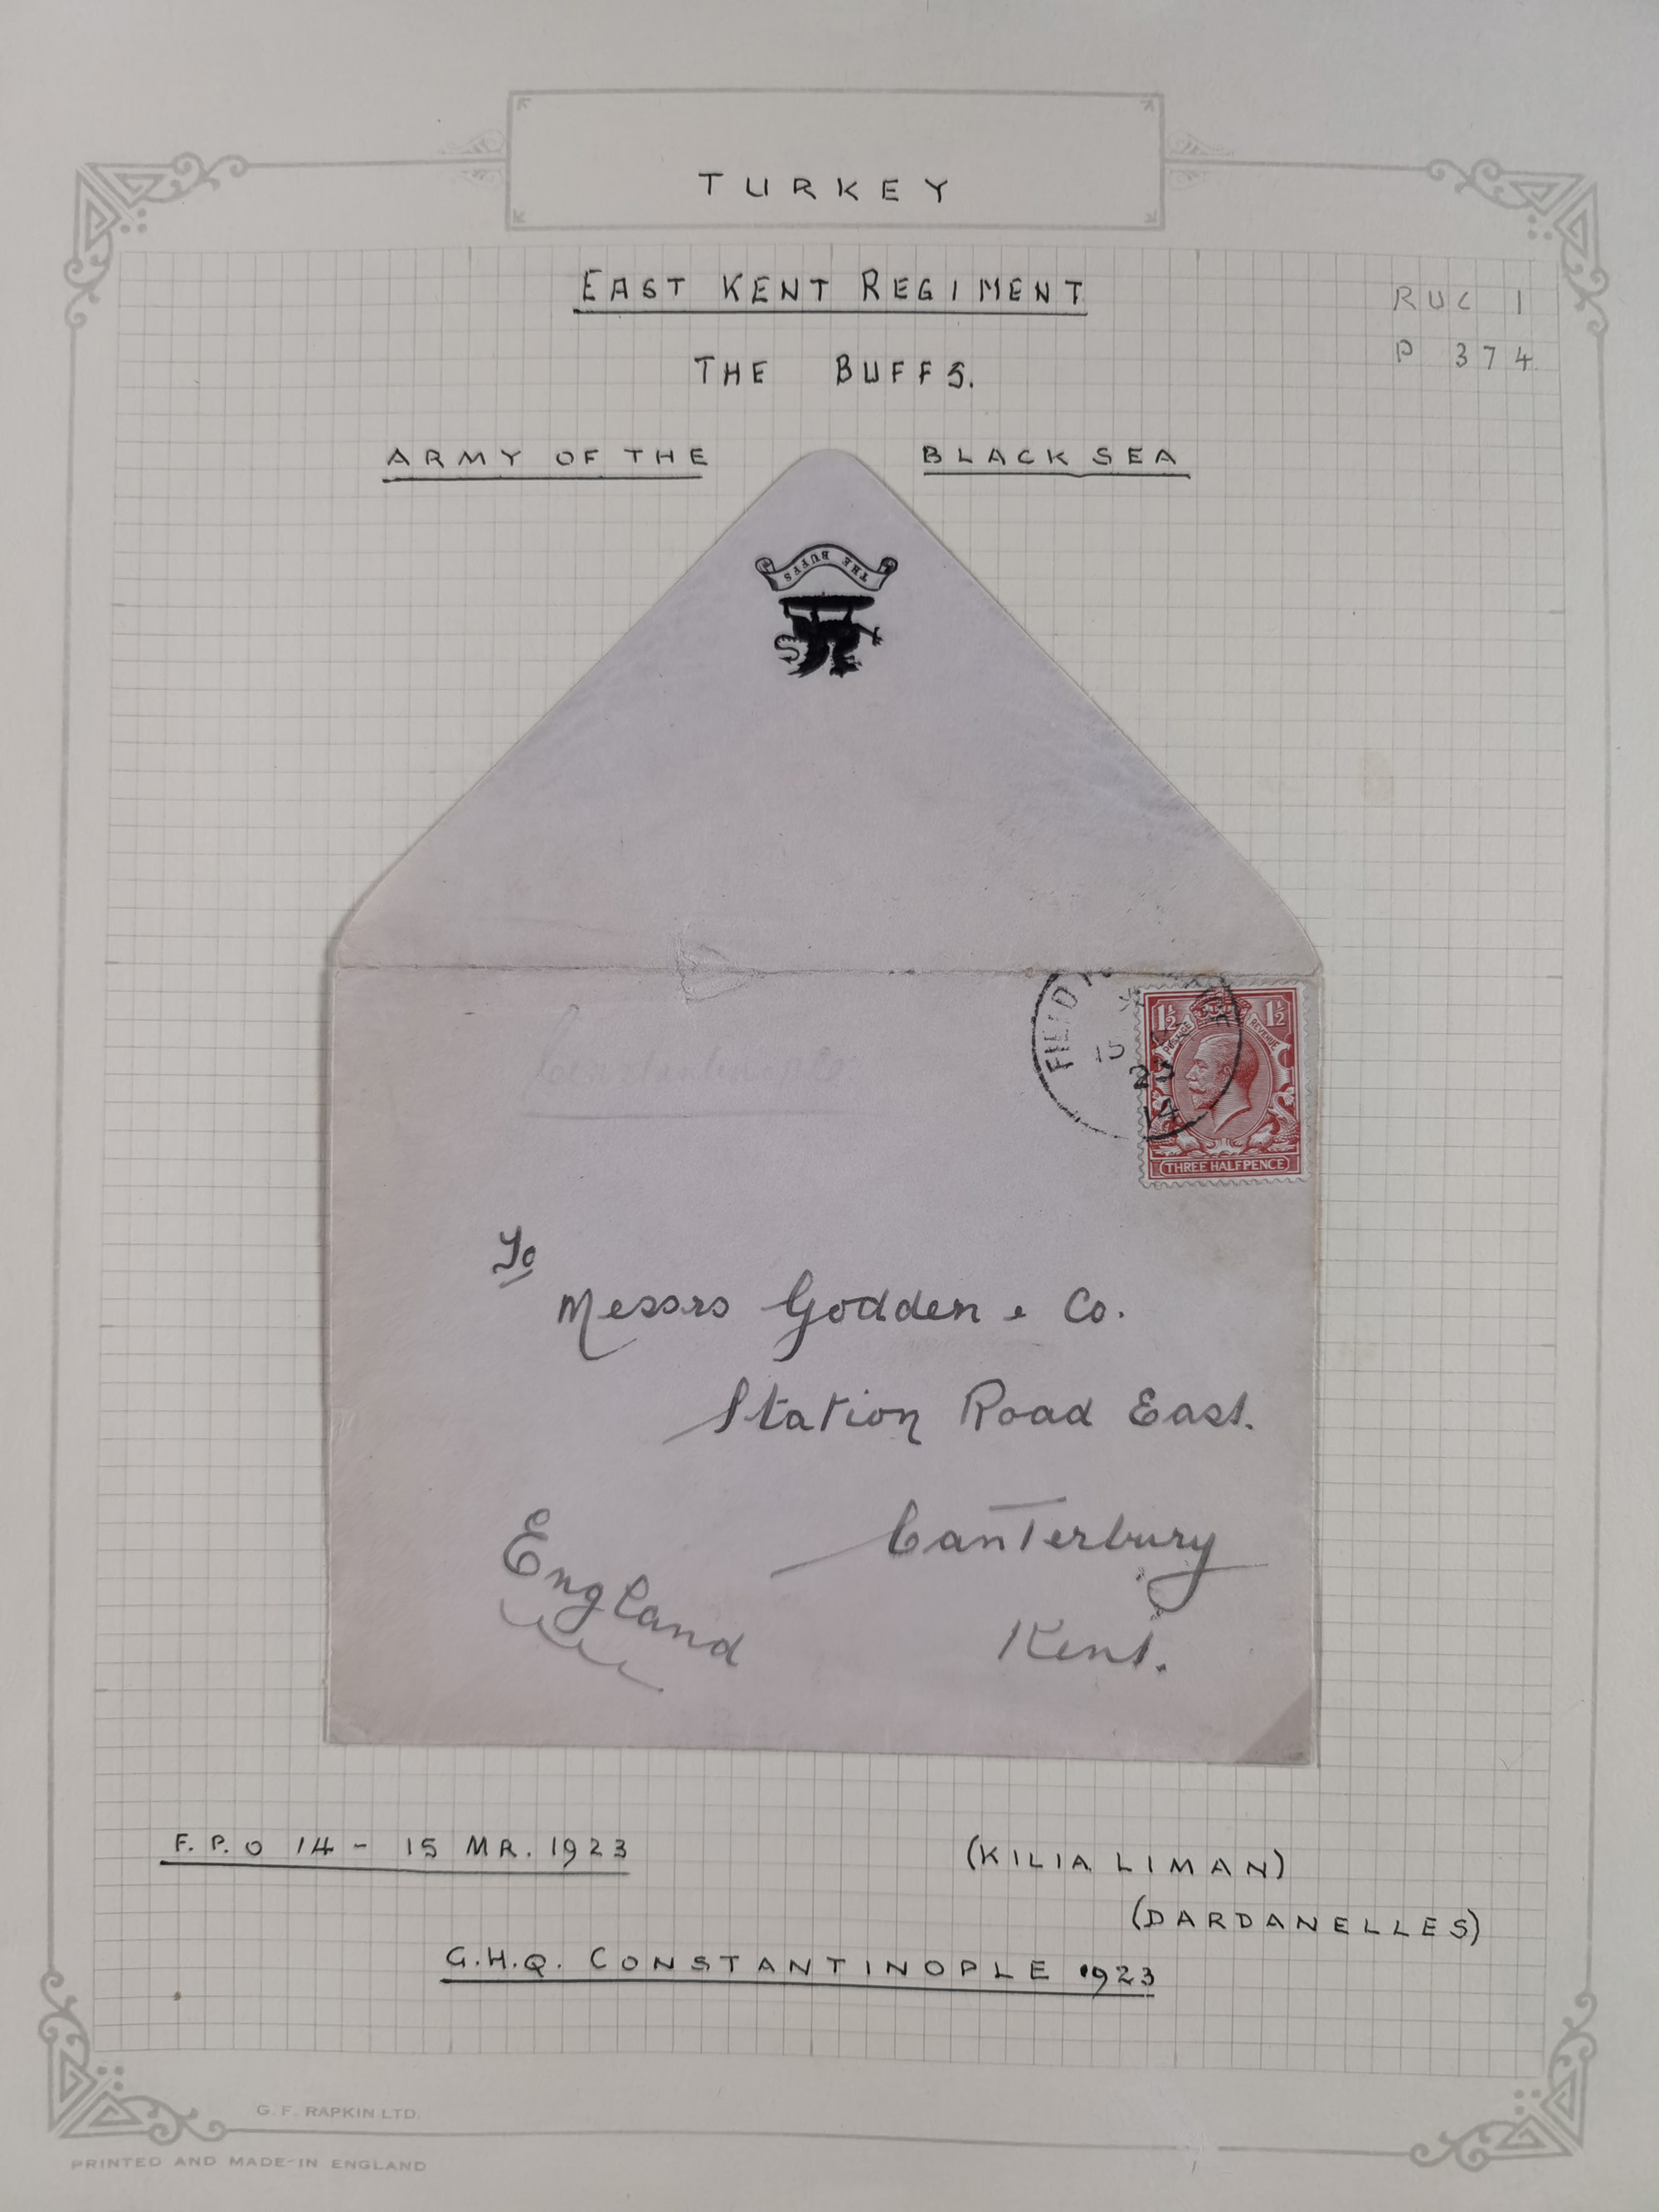 TURKEY
EAST KENT REGIMENT
RUC 1
THE BUFFS.
P 374
ARMY OF THE BLACK SEA
THE BUFFS
Constantinople
FIELD
15
14
1½ 1½
POSTAGE REVENUE
THREE HALFPENCE
To
Messrs Godden & Co.
Station Road East.
Canterbury
England
Kent.
F.P.O 14 - 15 MR. 1923
(KILIA LIMAN)
(DARDANELLES)
G.H.Q. CONSTANTINOPLE 1923
G. F. RAPKIN LTD.
PRINTED AND MADE IN ENGLAND